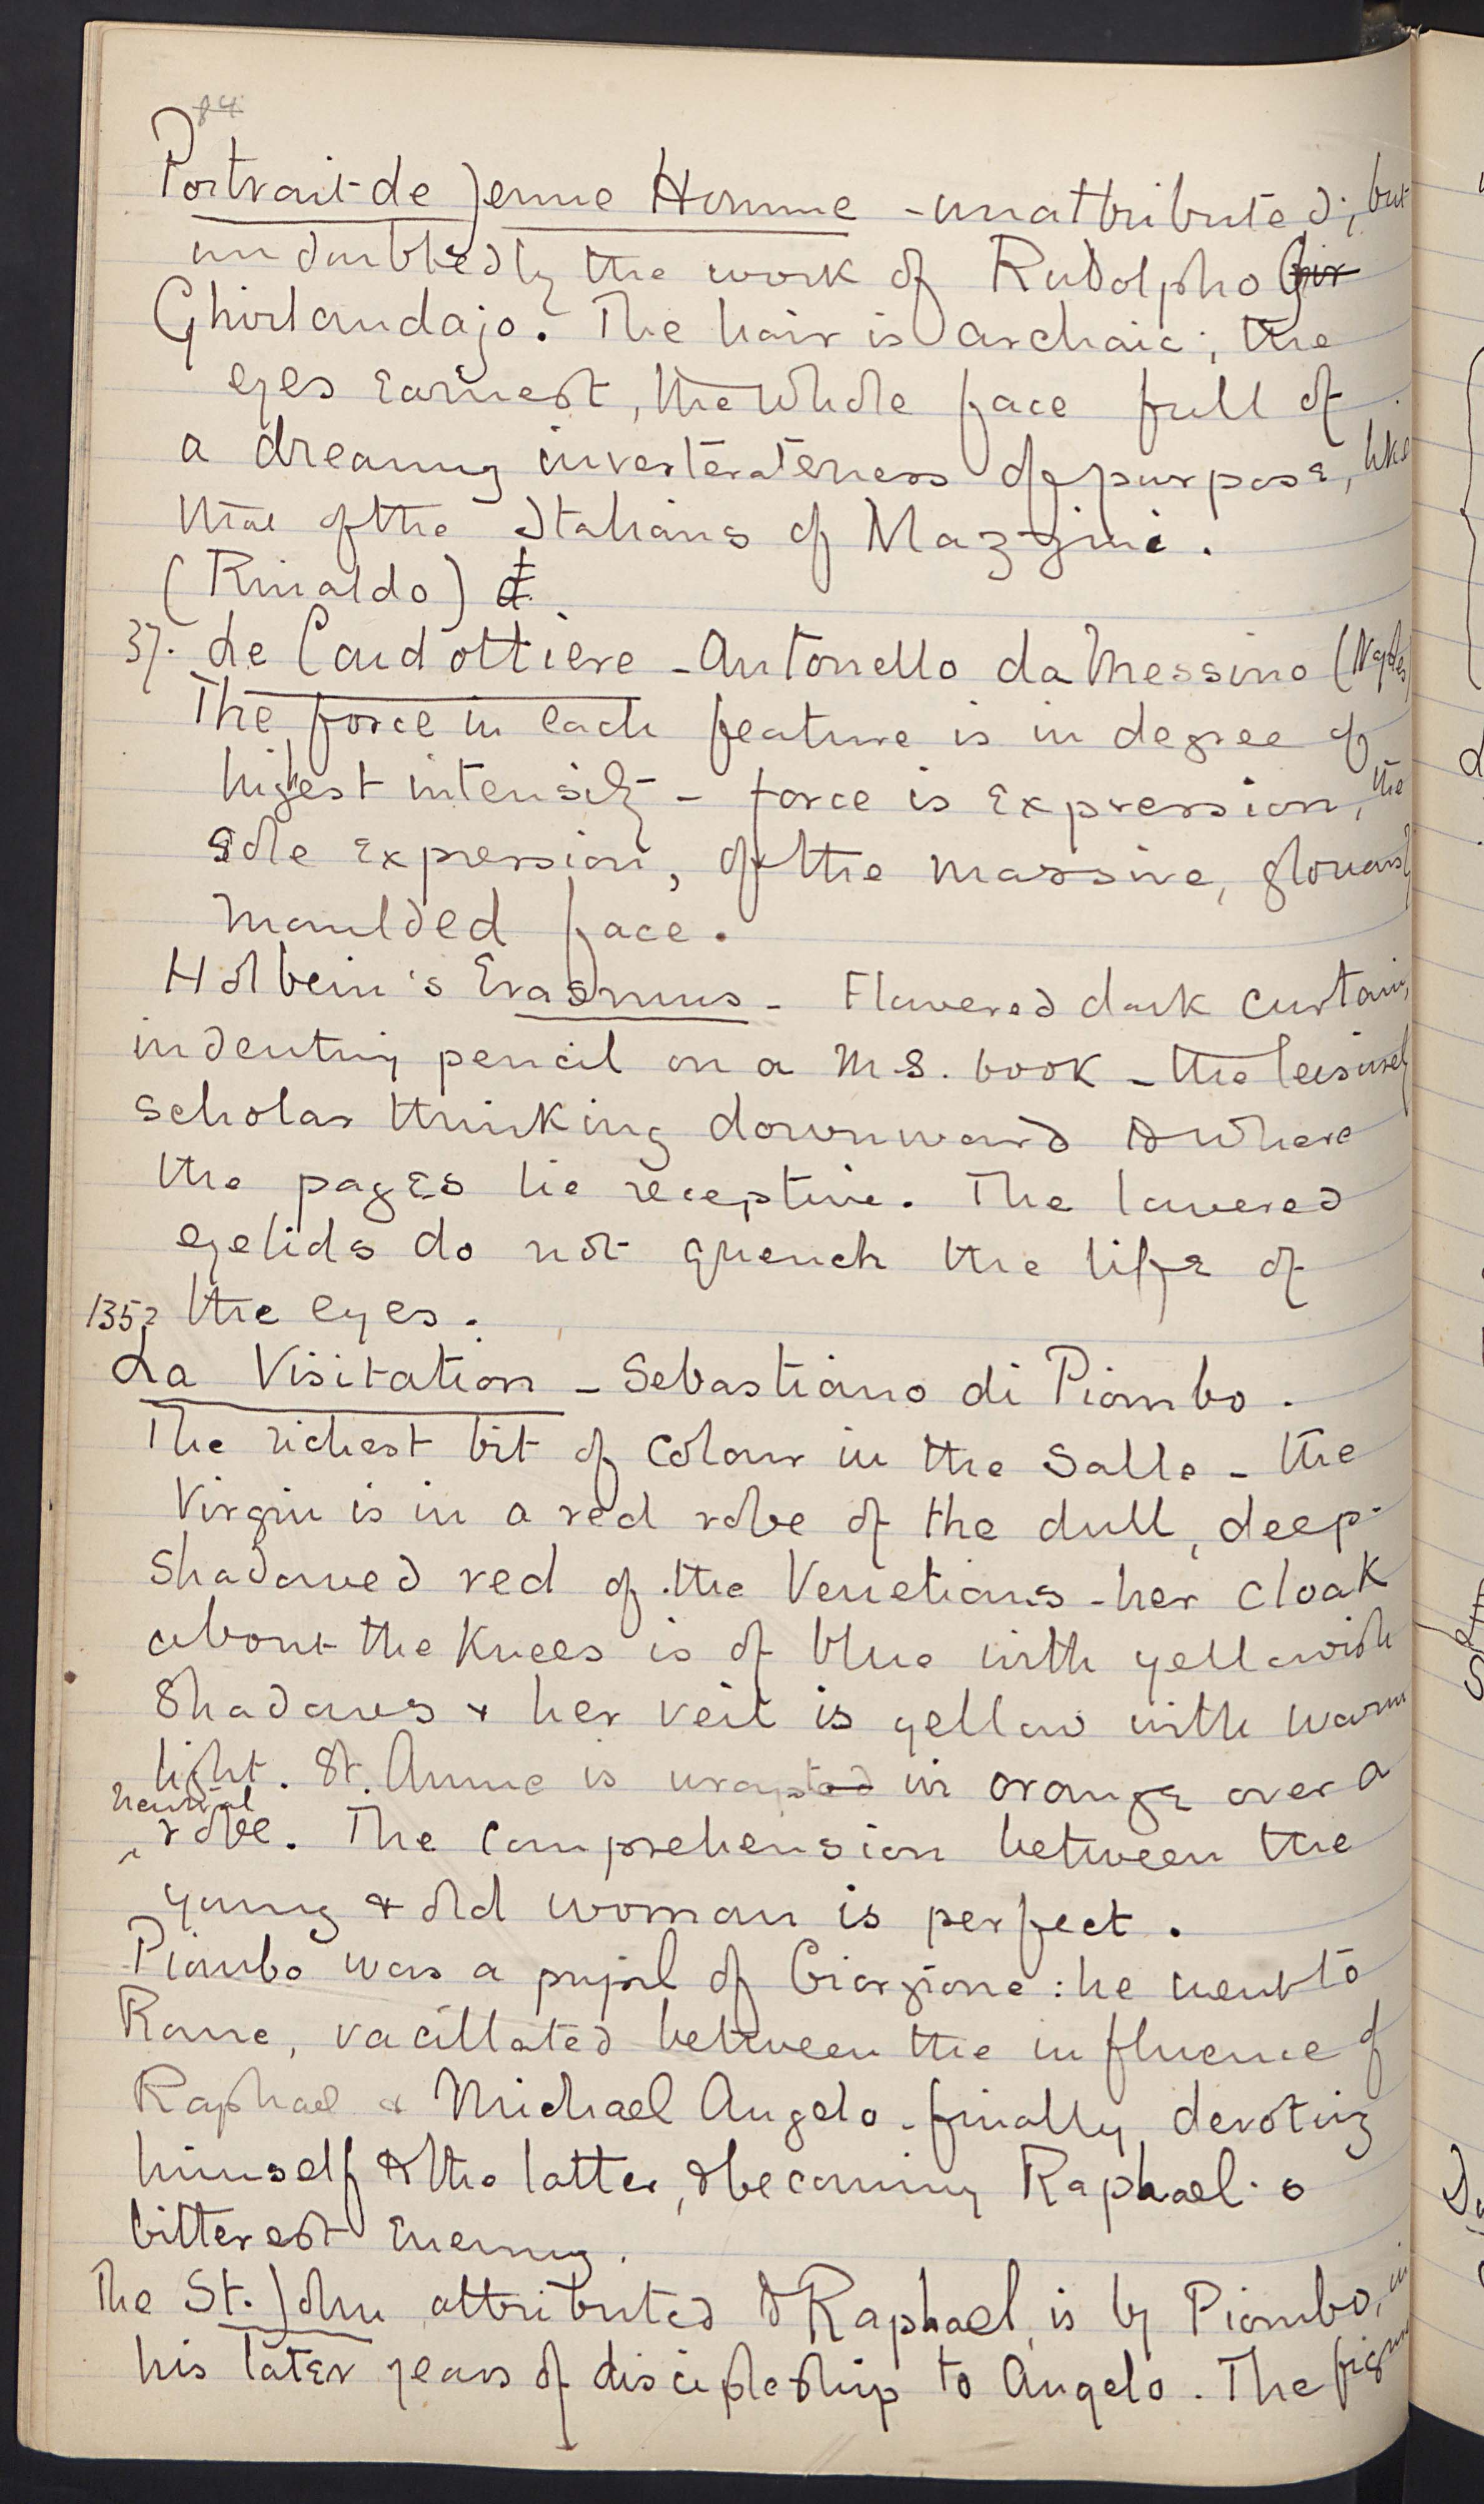 84
Portrait de Jeune Homme - unattributed; but
undoubtedly the work of Rudolpho Gir
Ghirlandajo. The hair is archaic; the
eyes earnest, the whole face full of
a dreamy inveterateness of purpose, like
that of the Italians of Mazzini.
(Rinaldo)
37. Le Condottiere - Antonello da Messino (Naples)
The force in each feature is in degree of
highest intensity - force is expression, the
sole expression, of the massive, gloriously
moulded face.
Holbein's Erasmus - Flowered dark curtain,
indenting pencil on a M.S. book - the leisurely
scholar thinking downward to where
the pages lie receptive. The lowered
eyelids do not quench the life of
1352 the eyes.
La Visitation - Sebastiano di Piombo.
The richest bit of colour in the Salle - the
Virgin is in a red robe of the dull, deep-
shadowed red of the Venetians - her cloak
about the knees is of blue with yellowish
shadows & her veil is yellow with warm
light. St. Anne is wrapted in orange over a
neutral
robe. The comprehension between the
young & old woman is perfect.
Piombo was a pupil of Giorgione: he went to
Rome, vacillated between the influence of
Raphael & Michael Angelo - finally devoting
himself to the latter, & becoming Raphael's
bitterest enemy.
The St. John attributed to Raphael, is by Piombo, in
his later years of discipleship to Angelo. The figure